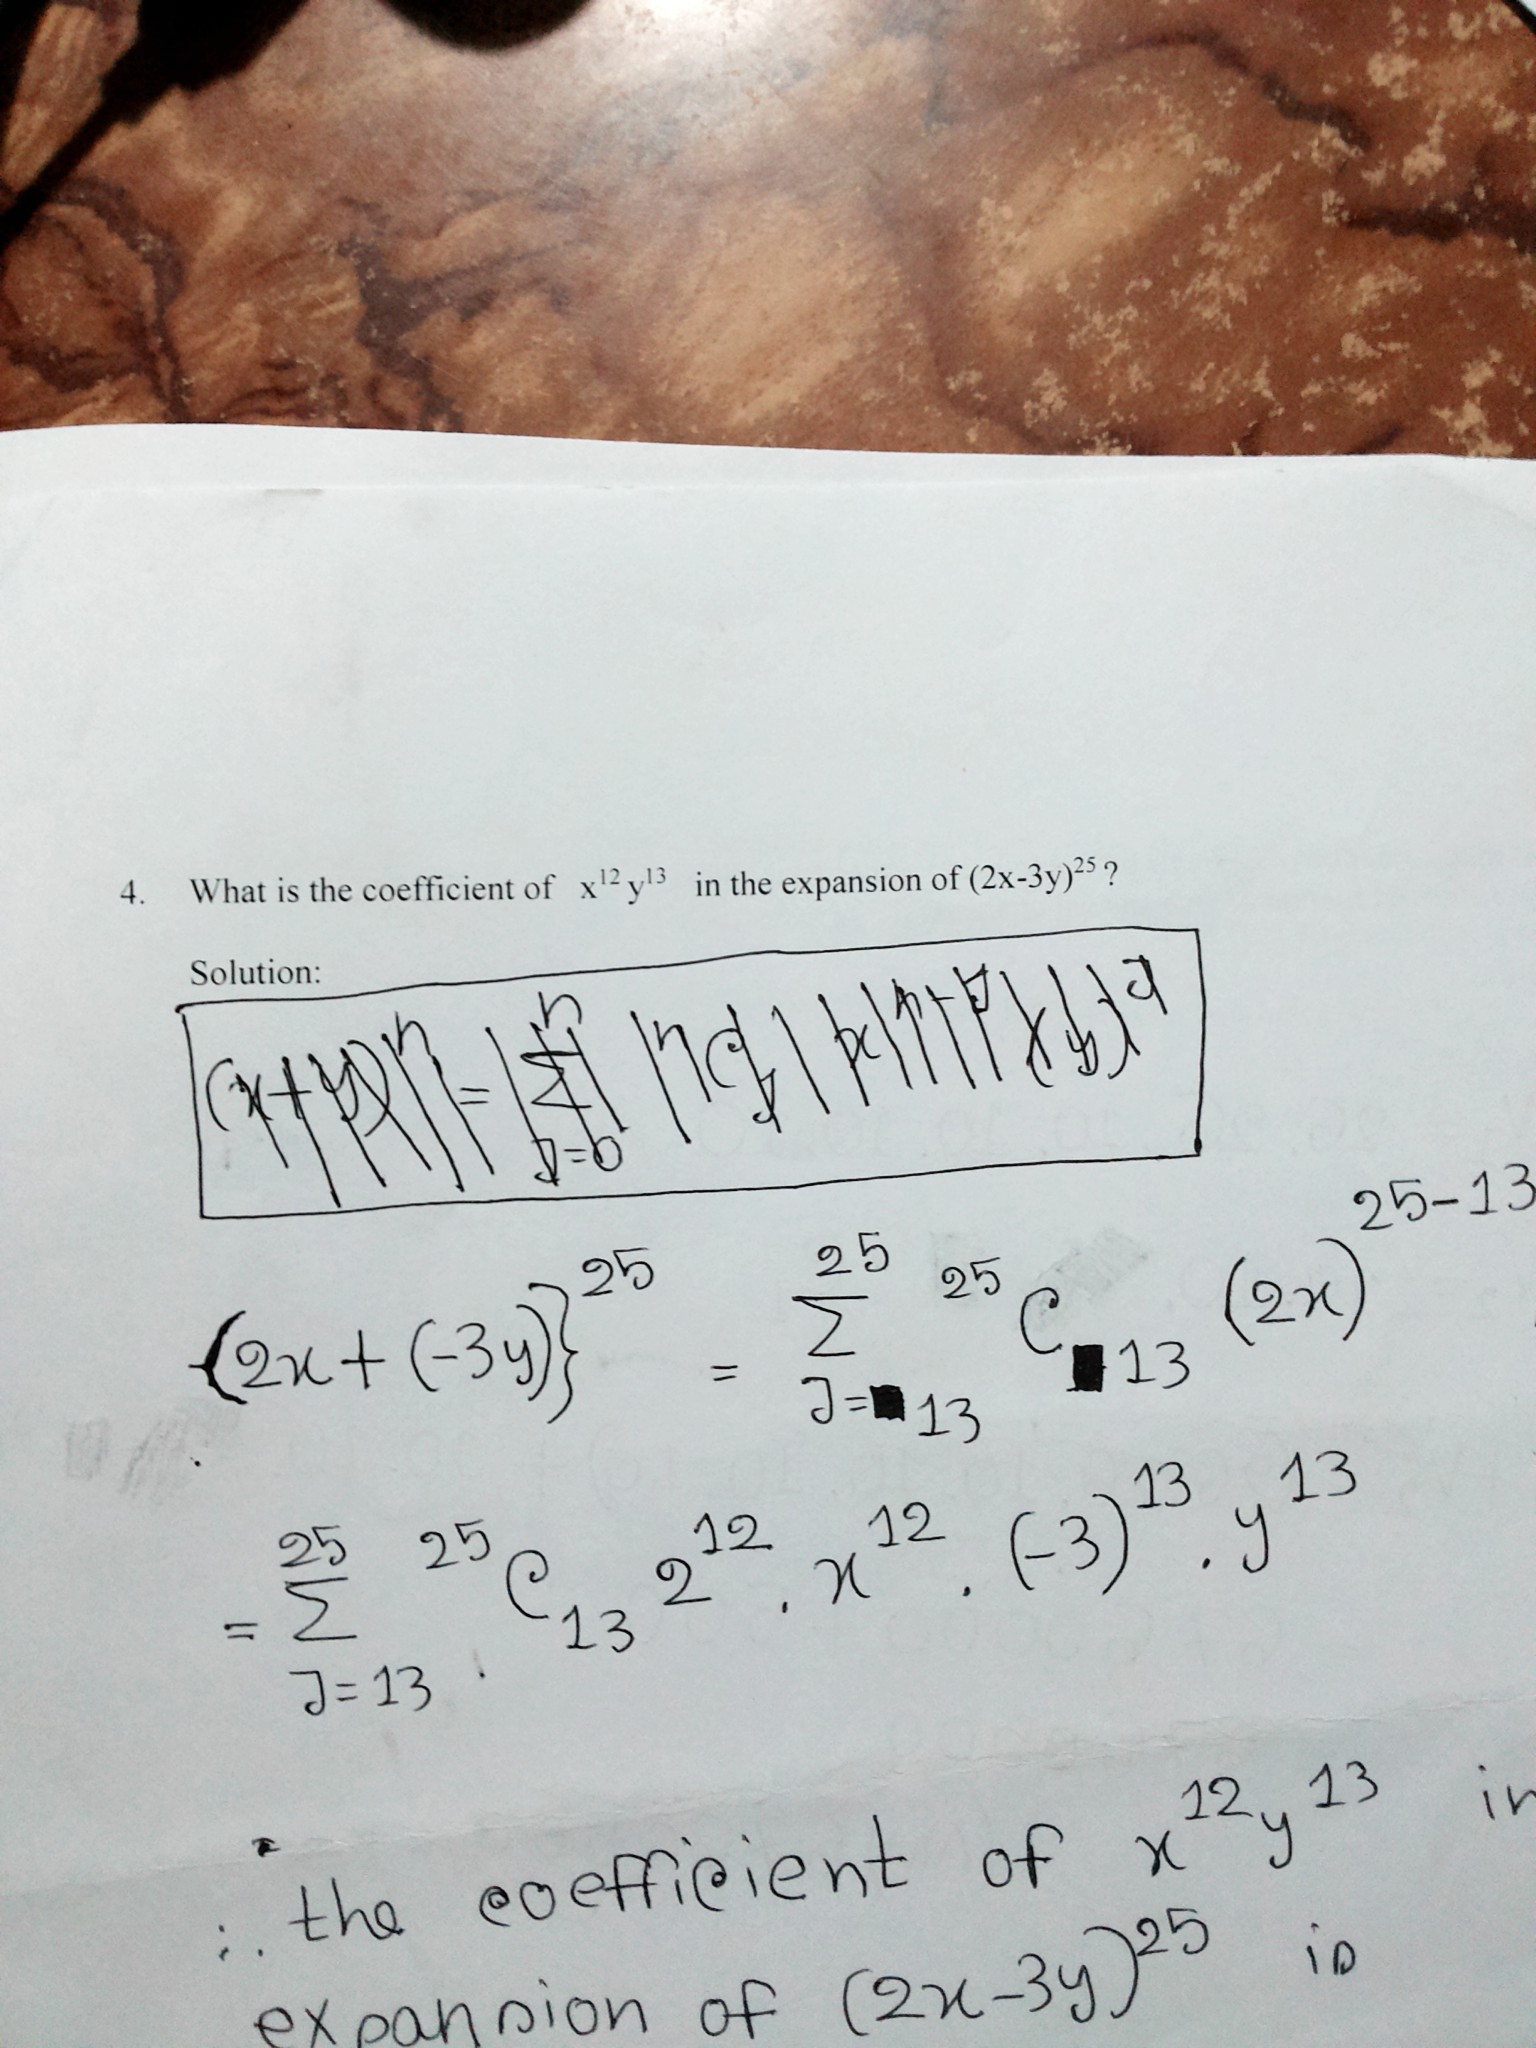 4. What is the coefficient of x¹²y¹³ in the expansion of (2x-3y)²⁵ ?
Solution:
(x+y)ⁿ = Σⁿ J=0 ⁿCⱼ xⁿ⁻ᴶ (y)ᴶ
{2x+(-3y)}²⁵ = Σ²⁵ J=13 ²⁵C₁₃ (2x)²⁵⁻¹³
= Σ²⁵ J=13 ²⁵C₁₃ 2¹² . x¹² . (-3)¹³ . y¹³
∴ the coefficient of x¹²y¹³ in
expansion of (2x-3y)²⁵ is